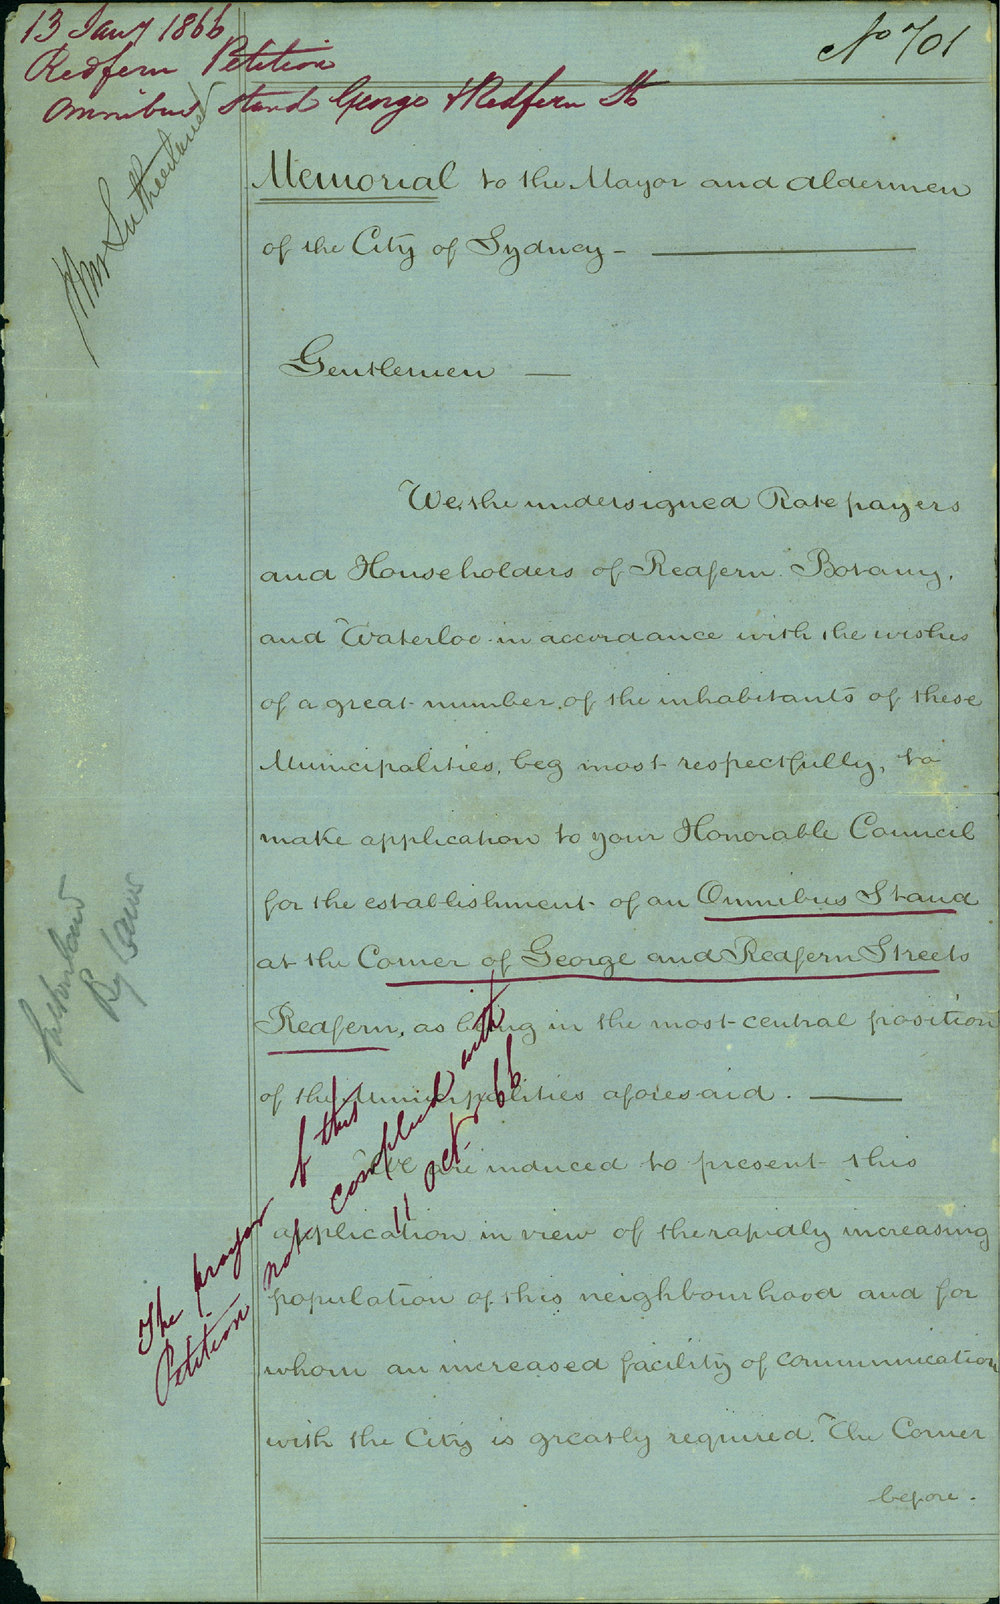 13 Jany 1866
Redfern Petition
Omnibus Stand George & Redfern St
No 701
Memorial to the Mayor and Aldermen
of the City of Sydney -
Gentlemen
We, the undersigned Ratepayers
and Householders of Redfern. Botany,
and Waterloo in accordance with the wishes
of a great number of the inhabitants of these
Municipalities, beg most respectfully, to
make application to your Honorable Council
for the establishment of an Omnibus Stand
at the Corner of George and Redfern Streets
Redfern, as being in the most central position
of the Municipalities aforesaid.
We are induced to present this
application in view of the rapidly increasing
population of this neighbourhood and for
whom an increased facility of communication
with the City is greatly required. The Corner
before.
Sutherland
Sutherland
The prayer of this
Petition not complied with
11 Oct 66